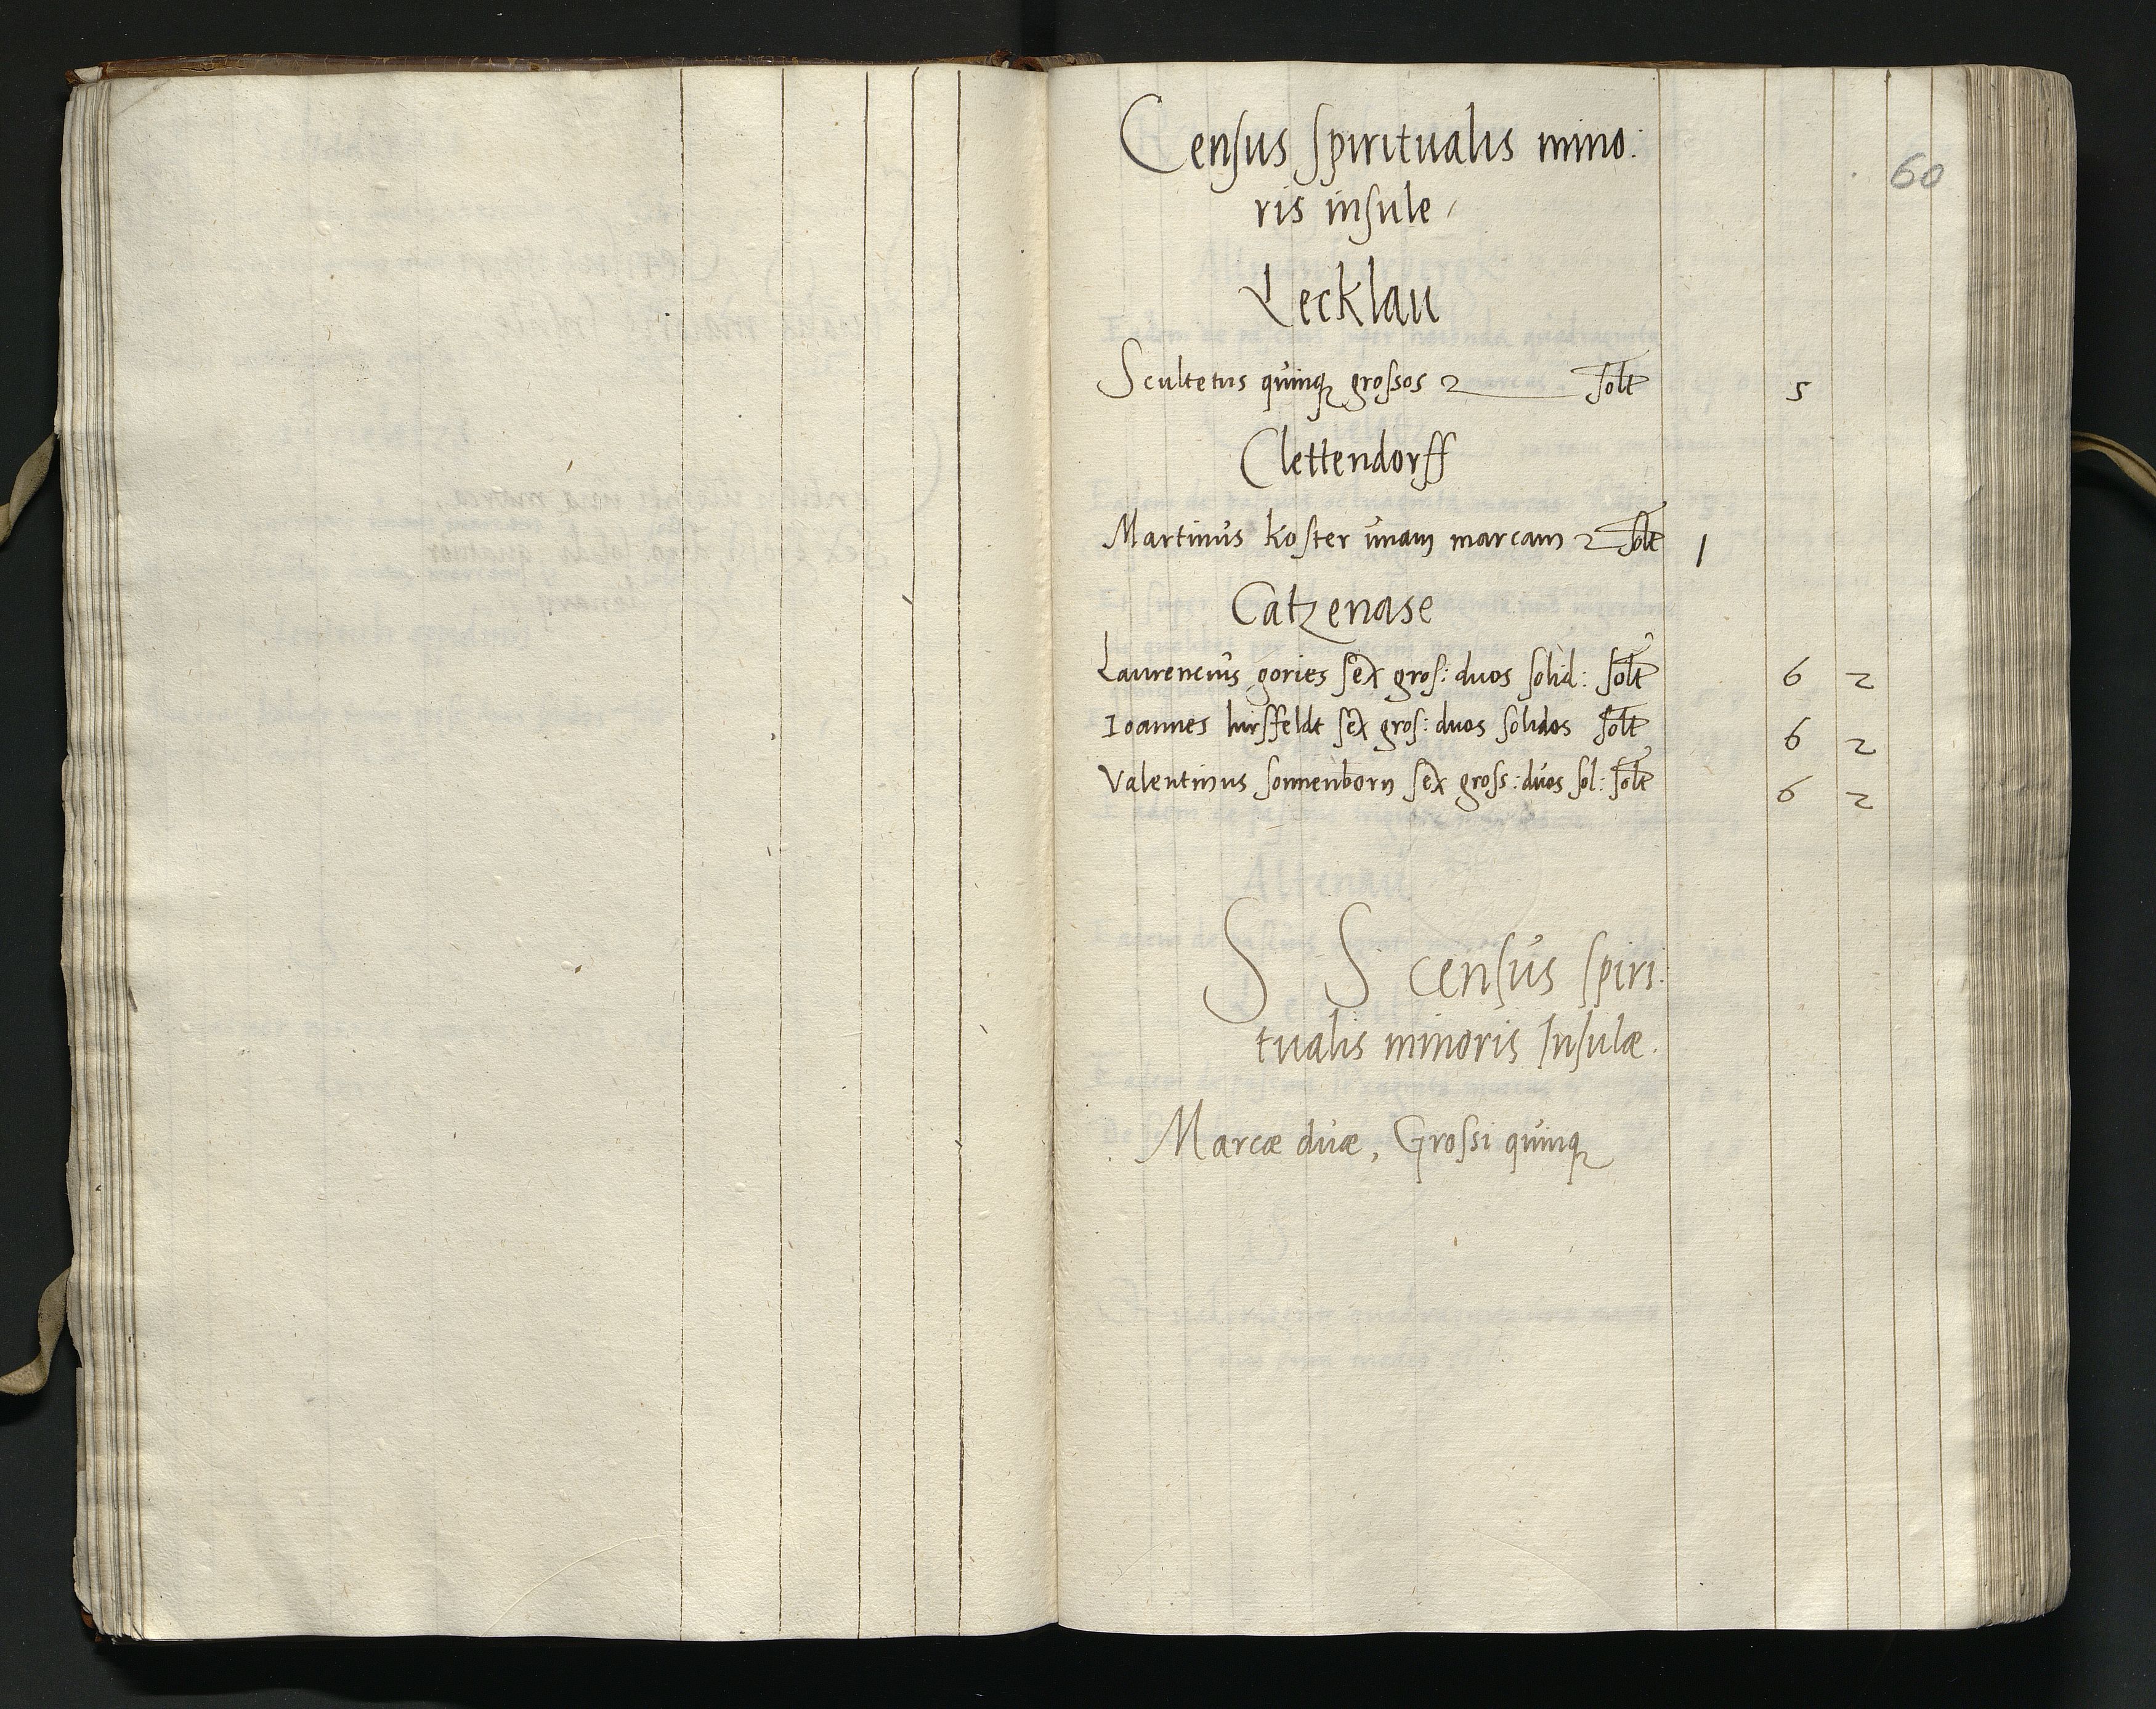 60
Census spiritualis mino:
ris insule
Lecklau
Scultetus quinq grossos solt 5
Clettendorff
Martinus Koster unam marcam solt 1
Catzenase
Laurencius gories sex gros: duos solid: solt 6 2
Ioannes hirsfeldt sex gros: duos solidos solt 6 2
Valentinus sonnenborn sex gross: duos sol: solt 6 2
S S census spiri:
tualis minoris Insulæ.
Marcæ duæ, Grossi quinq